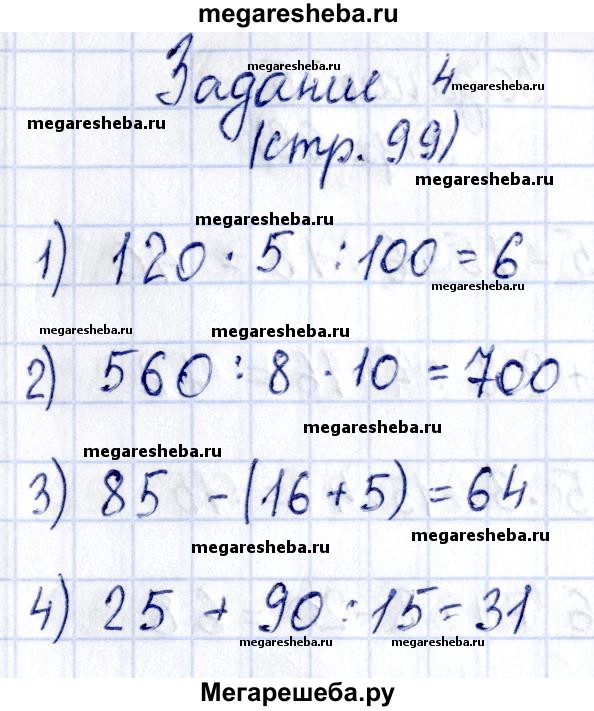 megaresheba.ru
megaresheba.ru
Задание 4
megaresheba.ru
megaresheba.ru
(стр. 99)
megaresheba.ru
megaresheba.ru
1) 120 · 5 : 100 = 6
megaresheba.ru
megaresheba.ru
megaresheba.ru
2) 560 : 8 · 10 = 700
megaresheba.ru
megaresheba.ru
3) 85 - (16 + 5) = 64
megaresheba.ru
megaresheba.ru
4) 25 + 90 : 15 = 31
megaresheba.ru
megaresheba.ru
Мегарешеба.ру